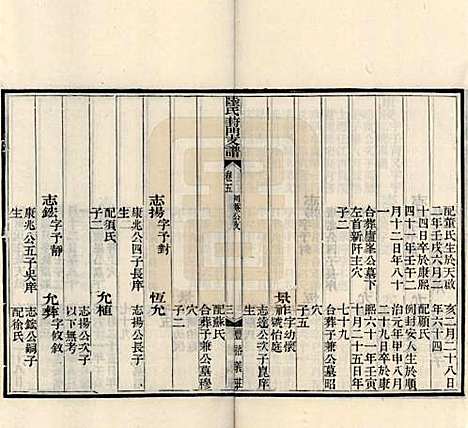 配董氏生於天啟
二年壬戌六月二
十四日卒於康熙
四十一年壬午二
月十二日年八十
一
合葬廬峯公墓下
左首新阡主穴
子二
亥一月二十八日
年六十四
配顧氏
例封安人生於順
治元年甲申八月
二十九日卒於康
熙六十一年壬寅
十月二十五日年
七十九
合葬子兼公墓昭
穴
子五
景祚字幼懷
號怡庭
志達公次子崑庠
生
配蘇氏
合葬子兼公墓穆
穴
子二
陸氏葑門支譜
卷五
三
豐裕義莊
志揚字予對
康兆公四子長庠
生
配須氏
子二
恆允
志揚公長子
允植
志揚公次子
以下無考
志鋐字予靜
康兆公五子吳庠
生
允彝字攸敘
志鋐公嗣子
配徐氏